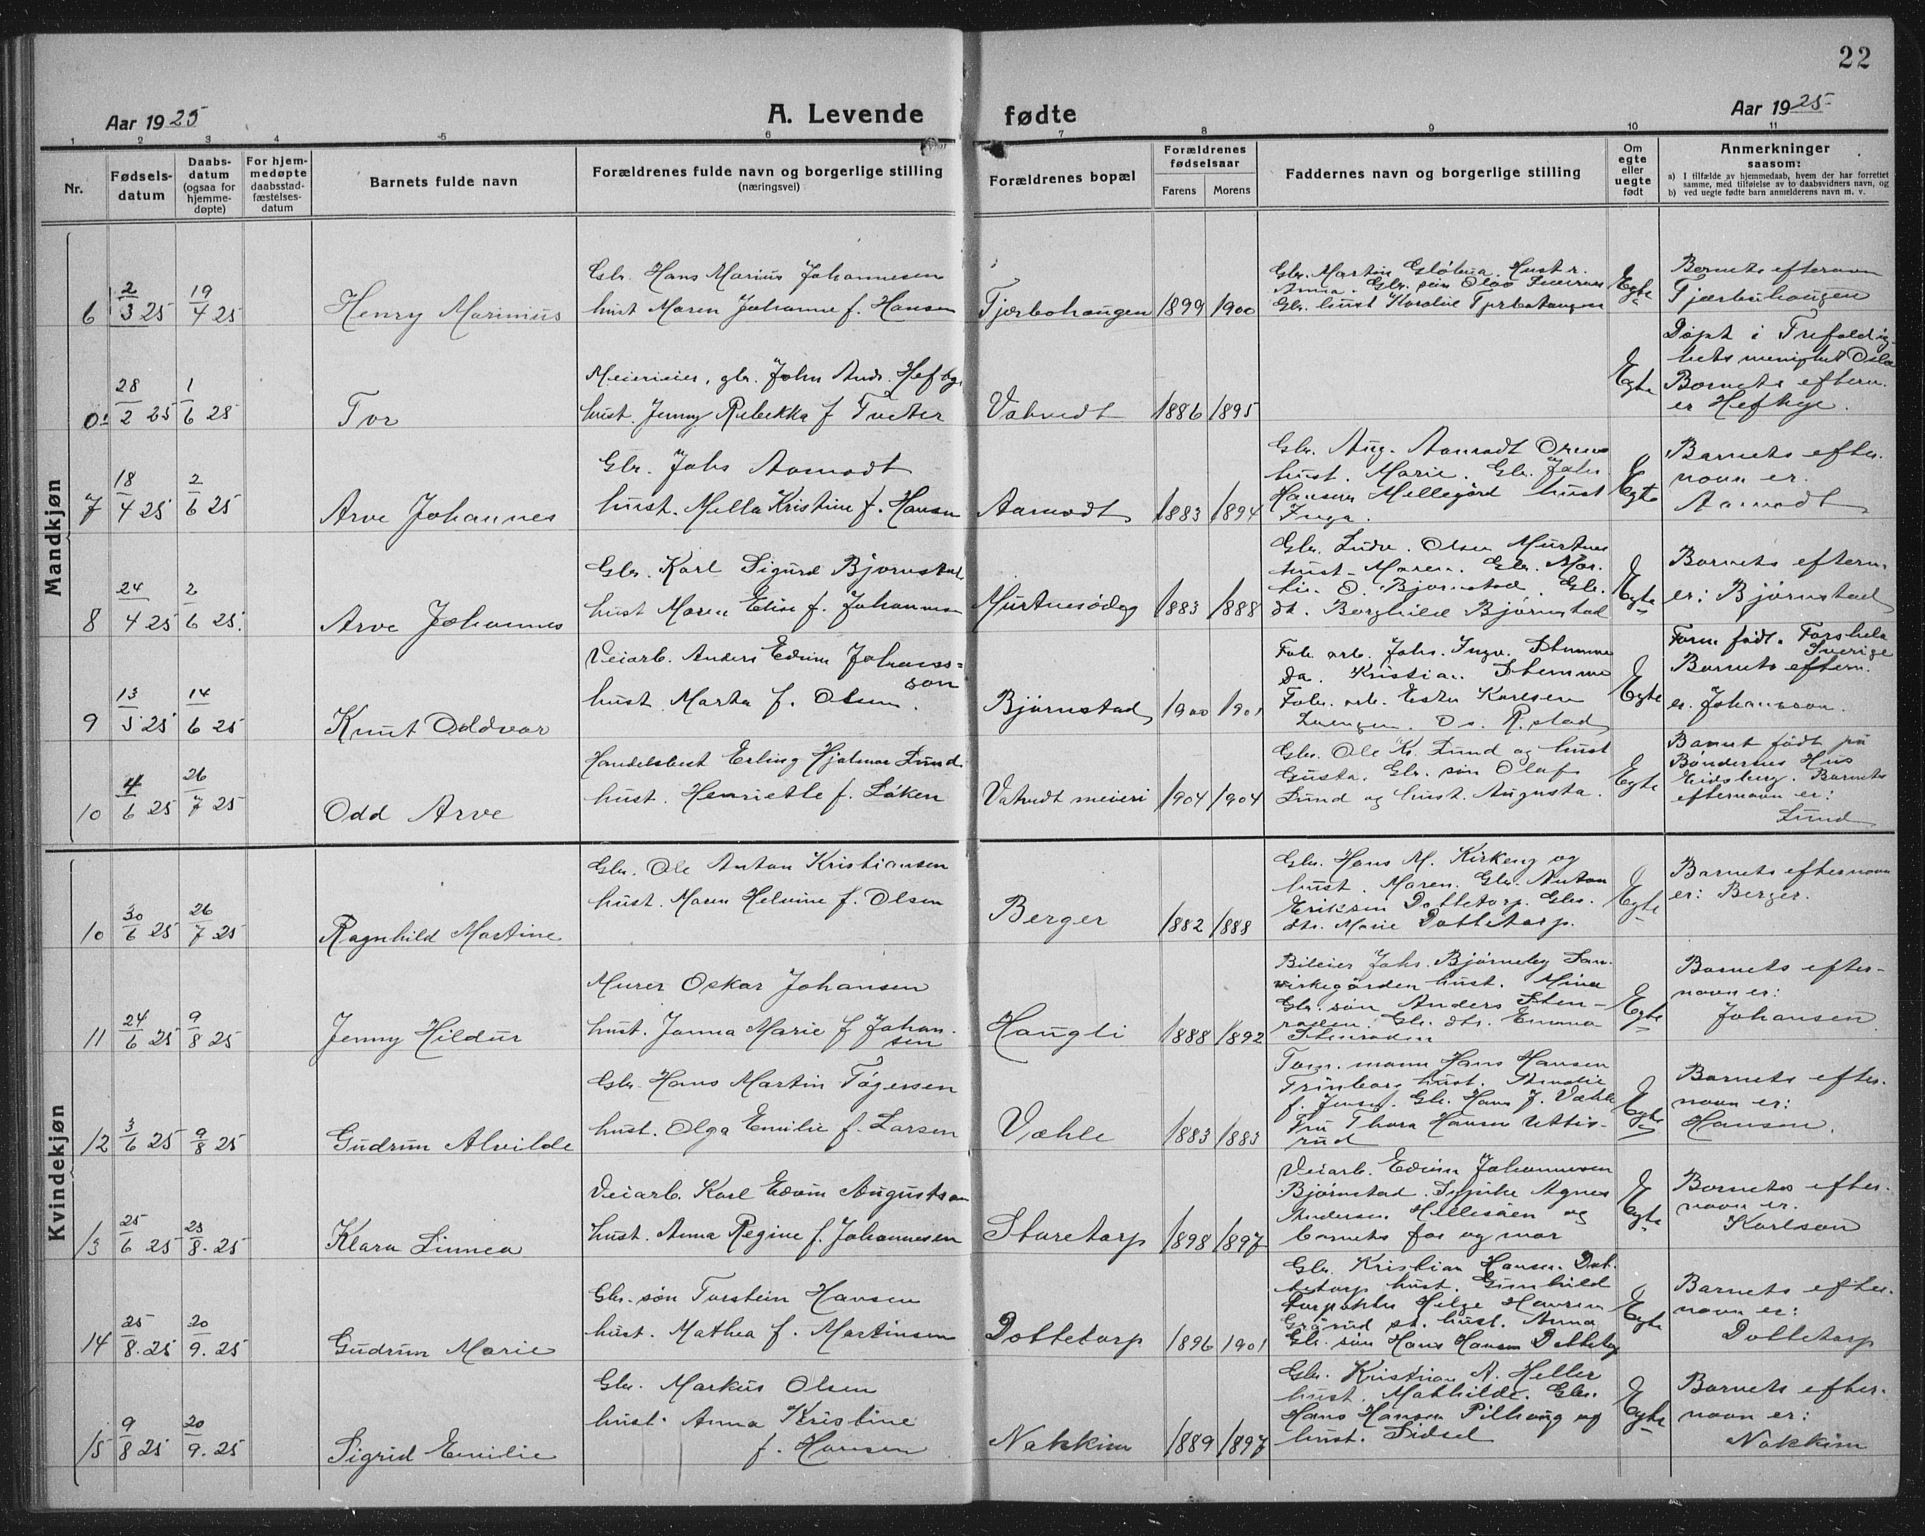 22
Aar 1925
A. Levende fødte
Aar 1925
1 2 3 4 5 6 7 8 9 10 11
Nr.
Fødsels-
datum
Daabs-
datum
(ogsaa for
hjemme-
døpte)
For hjem-
medøpte
daabsstad-
fæstelses-
datum
Barnets fulde navn
Forældrenes fulde navn og borgerlige stilling
(næringsvei)
Forældrenes bopæl
Forældrenes
fødselsaar
Farens Morens
Faddernes navn og borgerlige stilling
Om
egte
eller
uegte
født
Anmerkninger
saasom:
a) I tilfælde av hjemmedaab, hvem der har forrettet
samme, med tilføielse av to daabsvidners navn, og
b) ved uegte fødte barn anmelderens navn m. v.
Mandkjøn
6
2/3 25
19/4 25
Henry Marinius
Gbr. Hans Marius Johannesen
hust Maren Johanne f. Hansen
Tjærbohaugen
1899 1900
Gbr. Martin Hustr.
Anna. Gbr. søn Olav
Gbr. hust
Egte
Barnets efternavn
Tjærbuhaugen
28/2 25
1/6 25
Tor
Meierieier, gbr. John Andr. Heftye
hust. Jenny Rebekka f. Tveter
Vatvedt
1886 1895
Egte
Døpt i Trefoldig-
hets menighet Oslo
Barnets eftern.
er Heftye.
7
18/4 25
2/6 25
Arve Johannes
Gbr. Johs Aamodt
hust. Mella Kristine f. Hansen
Aamodt
1883 1894
Gbr. Aug. Aamodt
hust. Marie. Gbr. Johs
Hansen Mellegård hust
Inga.
Egte
Barnets efter-
navn er.
Aamodt
8
24/4 25
2/6 25.
Arve Johannes
Gbr. Karl Sigurd Bjørnstad
hust Maren Elise f. Johannesen
Murtnesødeg
1883 1888
Gbr. Ludv. Olsen Murtnes
hust. Maren. Gbr. Mar-
tin O. Bjørnstad. Gbr.
dt. Borghild Bjørnstad
Egte
Barnets eftern.
er: Bjørnstad
9
13/5 25
14/6 25
Knut Oddvar
Veiarb. Anders Edvin Johans-
son
hust. Marta f. Olsen.
Bjørnstad
1900 1901
Fab. arb. Johs. Ingv. Stemme
Da. Kristian Stemme
Fabr. arb. Ester Karlsen
Egte
Farn født.
Sverige
Barnets eftern.
er. Johansson.
10
4/6 25
26/7 25
Odd Arve
Handelsbest Erling Hjalmar Lund
hust. Henriette f. Løken
Vatvedt meieri
1904 1904
Gbr. Ole Kr. Lund og hust
Gusta. Gbr. søn Olaf
Lund og hust. Augusta.
Egte
Barnet født på
Bøndernes Hus
Eidsberg. Barnets
efternavn er:
Lund
Kvindekjøn
10
30/6 25
26/7 25
Ragnhild Martine
Gbr. Ole Anton Kristiansen
hust. Maren Helvine f. Olsen
Berger
1882 1888
Gbr. Hans M. Kirkeng og
hust. Maren. Gbr. Anton
Eriksen Dottetorp. Gbr.
dtr. Marie Dottetorp.
Egte
Barnets efternavn
er: Berger.
11
24/6 25
9/8 25
Jenny Hildur
Murer Oskar Johansen
hust. Janna Marie f Johan-
sen
Haugli
1888 1892
Bileier Johs. Bjørneby San-
virkegården hust. Mina
Gbr. søn Anders Sten-
røden. Gbr. dtr. Emma
Stenrøden
Egte
Barnets efter-
navn er:
Johansen
12
3/6 25
9/8 25
Gudrun Alvilde
Gbr. Hans Martin Tøgersen
hust. Olga Emilie f. Larsen
Væhle
1883 1883
Tom. mann Hans Hansen
Trinborg hust.
f. Jensen. Gbr. Hans J. Væhle
Fru Thora Hansen Uttis-
rud
Egte
Barnets efter-
navn er:
Hansen.
13
25/6 25
23/8. 25
Klara Linnea
Veiarb. Karl Edvin Augustson
hust. Anna Regine f. Johannesen
Staretorp
1898 1897
Veiarb. Edvin Johannesen
Bjørnstad. Agnes
Andersen Hellesåen og
barnets far og mor
Egte
Barnets efter-
navn er.
Karlson
14
25/8. 25
20/9. 25
Gudrun Marie
Gbr. søn Torstein Hansen
hust. Mathea f. Martinsen
Dottetorp
1896 1901
Gbr. Kristian Hansen Dot-
tetorp hust. Gunhild
Helge Hansen
hust. Anna
Gbr. søn Hans Hansen Dottetorp
Egte
Barnets efter-
navn er:
Dottetorp
15
9/8 25
20/9. 25
Sigrid Emilie
Gbr. Markus Olsen
hust. Anna Kristine
f. Hansen
Nakkim
1889 1897
Gbr. Kristian A. Heller
hust. Mathilde. Gbr.
Hans Hansen Pilhaug og
hust. Sidsel
Egte
Barnets efter-
navn er:
Nakkim